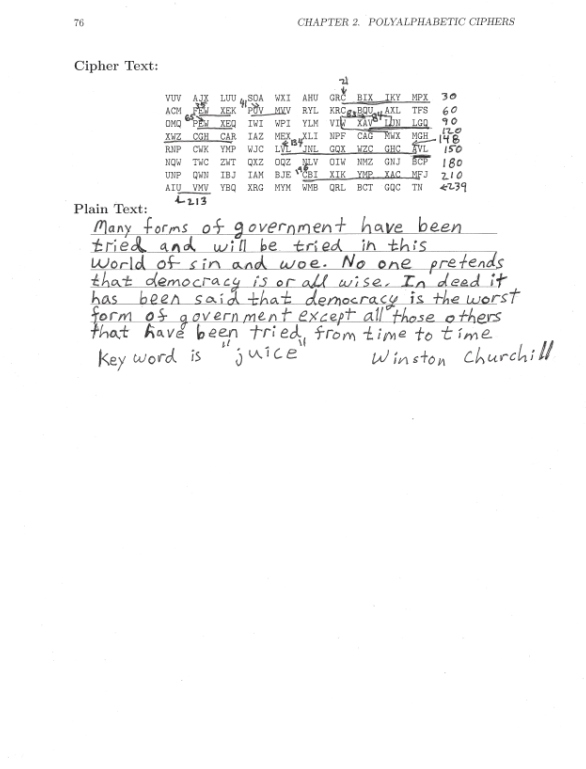 76 CHAPTER 2. POLYALPHABETIC CIPHERS
Cipher Text:
21
VUV AJX LUU SOA WXI AHU GRC BIX IKY MPX 30
35 41
ACM FEW XEK PUV MVV RYL KRC BQU AXL TFS 60
65 83 84
OMQ PEW XEQ IWI WPI YLM VIW XAV LJN LGQ 90
120
XWZ CGH CAR IAZ MEX XLI NPF CAG RWX MGH 148
134
RNP CWK YMP WJC LVL JNL GQX WZC GHC AVL 150
NQW TWC ZWT QXZ OQZ NLV OIW NMZ GNJ BCP 180
198
UNP QWN IBJ IAM BJE CBI XIK YMP XAC MFJ 210
AIU VMV YBQ XRG MYM WMB QRL BCT GQC TN 239
213
Plain Text:
Many forms of government have been
tried and will be tried in this
World of sin and woe. No one pretends
that democracy is or all wise. In deed it
has been said that democracy is the worst
form of government except all those others
that have been tried, from time to time
Key word is "juice" Winston Churchill